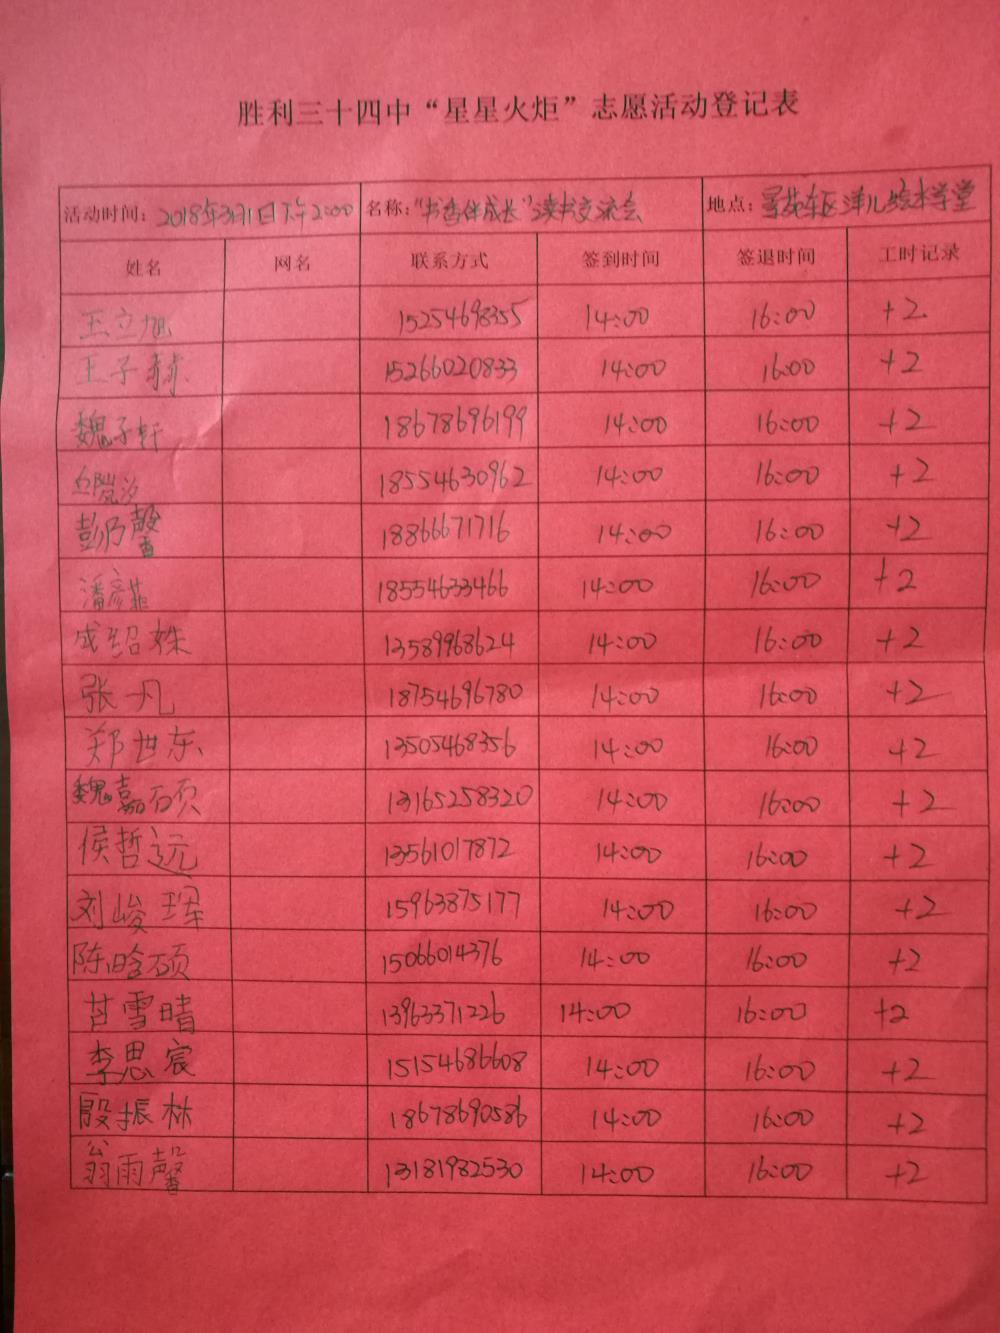 胜利三十四中“星星火炬”志愿活动登记表
活动时间：2018年3月1日下午2:00 名称：“书香伴成长”读书交流会 地点：洋儿绘本学堂
姓名 网名 联系方式 签到时间 签退时间 工时记录
王立旭 15254698355 14:00 16:00 +2
王子赫 15266020833 14:00 16:00 +2
魏子轩 18678696199 14:00 16:00 +2
18554630962 14:00 16:00 +2
彭乃馨 18866671716 14:00 16:00 +2
潘彦菲 18554633466 14:00 16:00 +2
成绍姝 13589968624 14:00 16:00 +2
张凡 18754696780 14:00 16:00 +2
郑世东 13505468356 14:00 16:00 +2
魏嘉硕 13165258320 14:00 16:00 +2
侯哲远 13561017872 14:00 16:00 +2
刘峻琿 15963875177 14:00 16:00 +2
陈晗硕 15066014376 14:00 16:00 +2
甘雪晴 13963371226 14:00 16:00 +2
李思宸 15154686608 14:00 16:00 +2
殷振林 18678690586 14:00 16:00 +2
翁雨馨 13181982530 14:00 16:00 +2